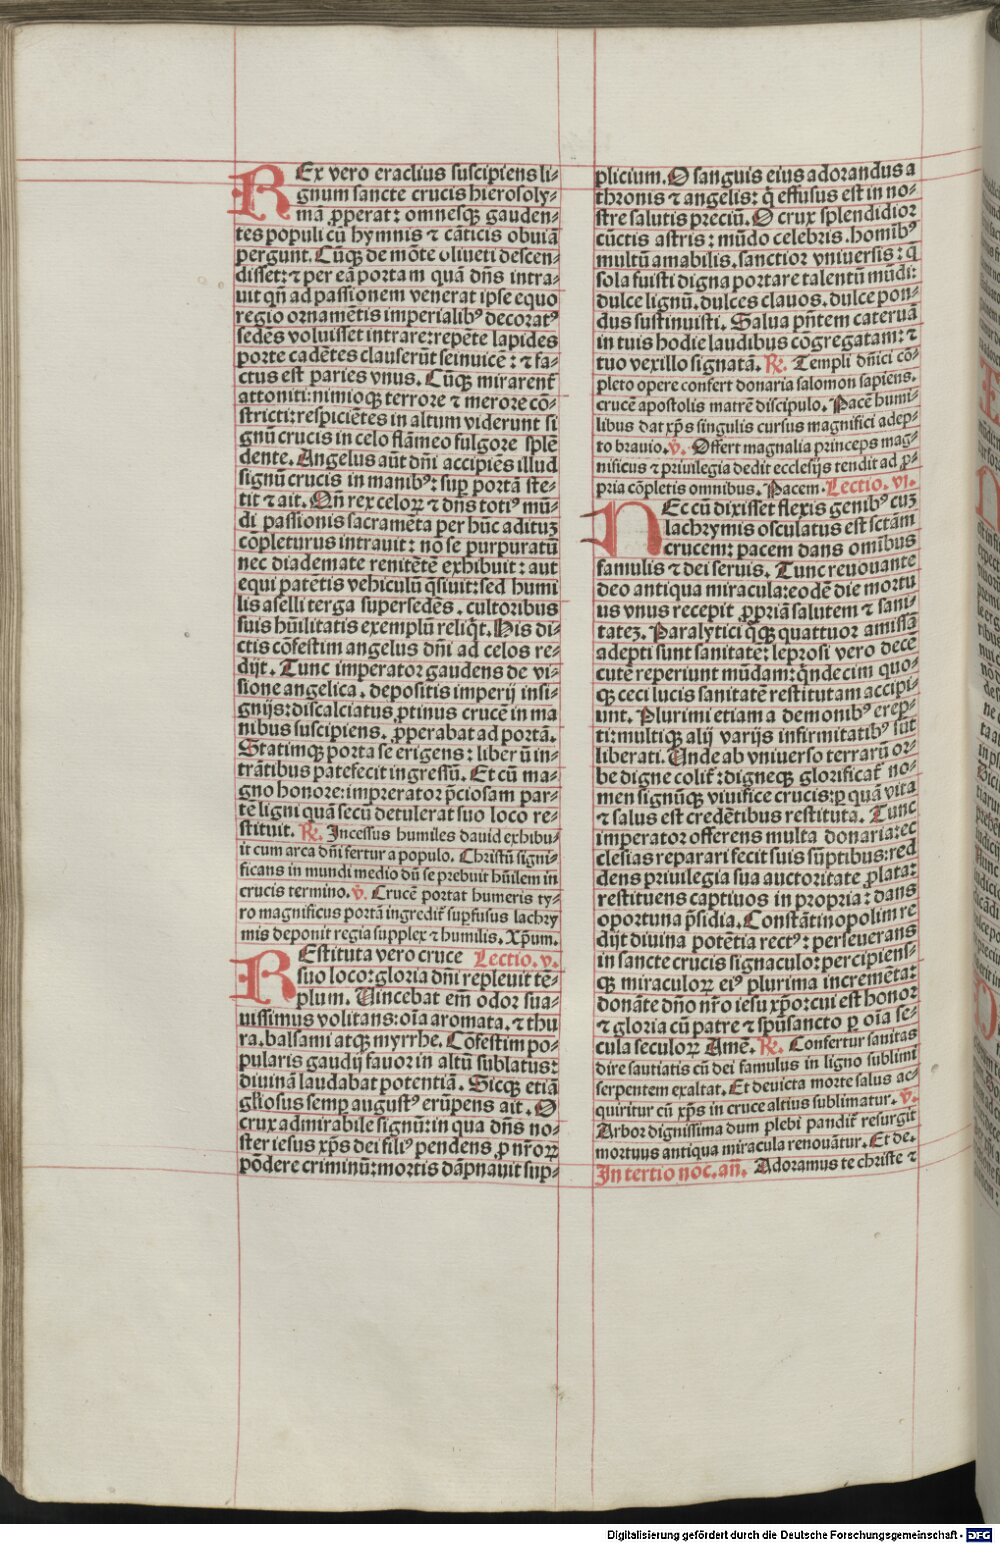 REx vero eraclius suscipiens li-
gnum sancte crucis hierosoly-
mā ꝓperat: omnesqꝫ gauden-
tes populi cū hymnis ⁊ cāticis obuiā
pergunt. Cūqꝫ de mōte oliueti descen-
disset: ⁊ per eā portam quā dn̄s intra-
uit qn̄ ad passionem venerat ipse equo
regio ornamētis imperialibꝰ decoratꝰ
sedēs voluisset intrare: repēte lapides
porte cadētes clauserūt se inuicē: ⁊ fa-
ctus est paries vnus. Cūqꝫ mirarent̄
attoniti: nimioqꝫ terrore ⁊ merore cō-
stricti: respiciētes in altum viderunt si
gnū crucis in celo flāmeo fulgore splē
dente. Angelus aūt dn̄i accipiēs illud
signū crucis in manibꝰ: sup̱ portā ste-
tit ⁊ ait. Qn̄ rex celoꝝ ⁊ dn̄s totiꝰ mū-
di passionis sacramēta per hūc adituꝫ
cōpleturus intrauit: nō se purpuratū
nec diademate renitētē exhibuit: aut
equi patētis vehiculū q̄siuit: sed humi
lis aselli terga supersedēs. cultoribus
suis hūilitatis exemplū reliq̄t. His di-
ctis cōfestim angelus dn̄i ad celos re-
dijt. Tunc imperator gaudens de vi-
sione angelica. depositis imperij insi-
gnijs: discalciatus ꝓtinus crucē in ma
nibus suscipiens. ꝓperabat ad portā.
Statimqꝫ porta se erigens: liberū in-
trātibus patefecit ingressū. Et cū ma-
gno honore: imprerator p̄ciosam par-
tē ligni quā secū detulerat suo loco re-
stituit. ℟. Incessus humiles dauid exhibu-
it cum arca dn̄i fertur a populo. Christū signi-
ficans in mundi medio dū se prebuit hūilem in
crucis termino. ℣. Crucē portat humeris ty-
ro magnificus portā ingredit̄ sup̱fusus lachry
mis deponit regia supplex ⁊ humilis. Xp̄um.
REstituta vero cruce Lectio. v.
suo loco: gloria dn̄i repleuit tē-
plum. Vincebat em̄ odor sua-
uissimus volitans: oīa aromata. ⁊ thu
ra. balsami atqꝫ myrrhe. Cōfestim po-
pularis gaudij fauor in altū sublatus:
diuinā laudabat potentiā. Sicqꝫ etiā
gliosus semp̱ augustꝰ erūpens ait. O
crux admirabile signū: in qua dn̄s no-
ster iesus xp̄s dei filiꝰ pendens ꝓ nr̄oꝝ
pōdere criminū: mortis dāpnauit sup-
plicium. O sanguis eius adorandus a
thronis ⁊ angelis: q̄ effusus est in no-
stre salutis preciū. O crux splendidior
cūctis astris: mūdo celebris. homībꝰ
multū amabilis. sanctior vniuersis: q̄
sola fuisti digna portare talentū mūdi:
dulce lignū. dulces clauos. dulce pon-
dus sustinuisti. Salua pn̄tem cateruā
in tuis hodie laudibus cōgregatam: ⁊
tuo vexillo signatā. ℟. Templi dn̄ici cō-
pleto opere confert donaria salomon sapiens.
crucē apostolis matrē discipulo. Pacē humi-
libus dat xp̄s singulis cursus magnifici adep-
to brauio. ℣. Offert magnalia princeps mag-
nificus ⁊ priuilegia dedit ecclesijs tendit ad ꝓ-
pria cōpletis omnibus. Pacem. Lectio. vi.
NEc cū dixisset flexis genibꝰ cuꝫ
lachrymis osculatus est sctām
crucem: pacem dans omībus
famulis ⁊ dei seruis. Tunc reuouante
deo antiqua miracula: eodē die mortu
us vnus recepit ꝓpriā salutem ⁊ sani-
tateꝫ. Paralytici q̄qꝫ quattuor amissā
adepti sunt sanitatē: leprosi vero decē
cutē reperiunt mūdam: q̄ndecim quo-
qꝫ ceci lucis sanitatē restitutam accipi-
unt. Plurimi etiam a demonibꝰ erep-
ti: multiqꝫ alij varijs infirmitatibꝰ sūt
liberati. Unde ab vniuerso terrarū or-
be digne colit̄: digneqꝫ glorificat̄ no-
men signūqꝫ viuifice crucis: ꝑ quā vita
⁊ salus est credētibus restituta. Tunc
imperator offerens multa donaria: ec
clesias reparari fecit suis sūptibus: red
dens priuilegia sua auctoritate ꝓlata:
restituens captiuos in propria: dans
oportuna p̄sidia. Constātinopolim re
dijt diuina potētia rectꝰ: perseuerans
in sancte crucis signaculo: percipiens-
qꝫ miraculoꝝ eiꝰ plurima incremēta:
donāte dn̄o nr̄o iesu xp̄o: cui est honor
⁊ gloria cū patre ⁊ spū sancto ꝑ oīa se-
cula seculoꝝ Amē. ℟. Confertur sanitas
dire sautiatis cū dei famulus in ligno sublimi
serpentem exaltat. Et deuicta morte salus ac-
quiritur cū xp̄s in cruce altius sublimatur. ℣.
Arbor dignissima dum plebi pandit̄ resurgit
mortuus antiqua miracula renouātur. Et de.
In tertio noc. an̄. Adoramus te christe ⁊
Digitalisierung gefördert durch die Deutsche Forschungsgemeinschaft - DFG